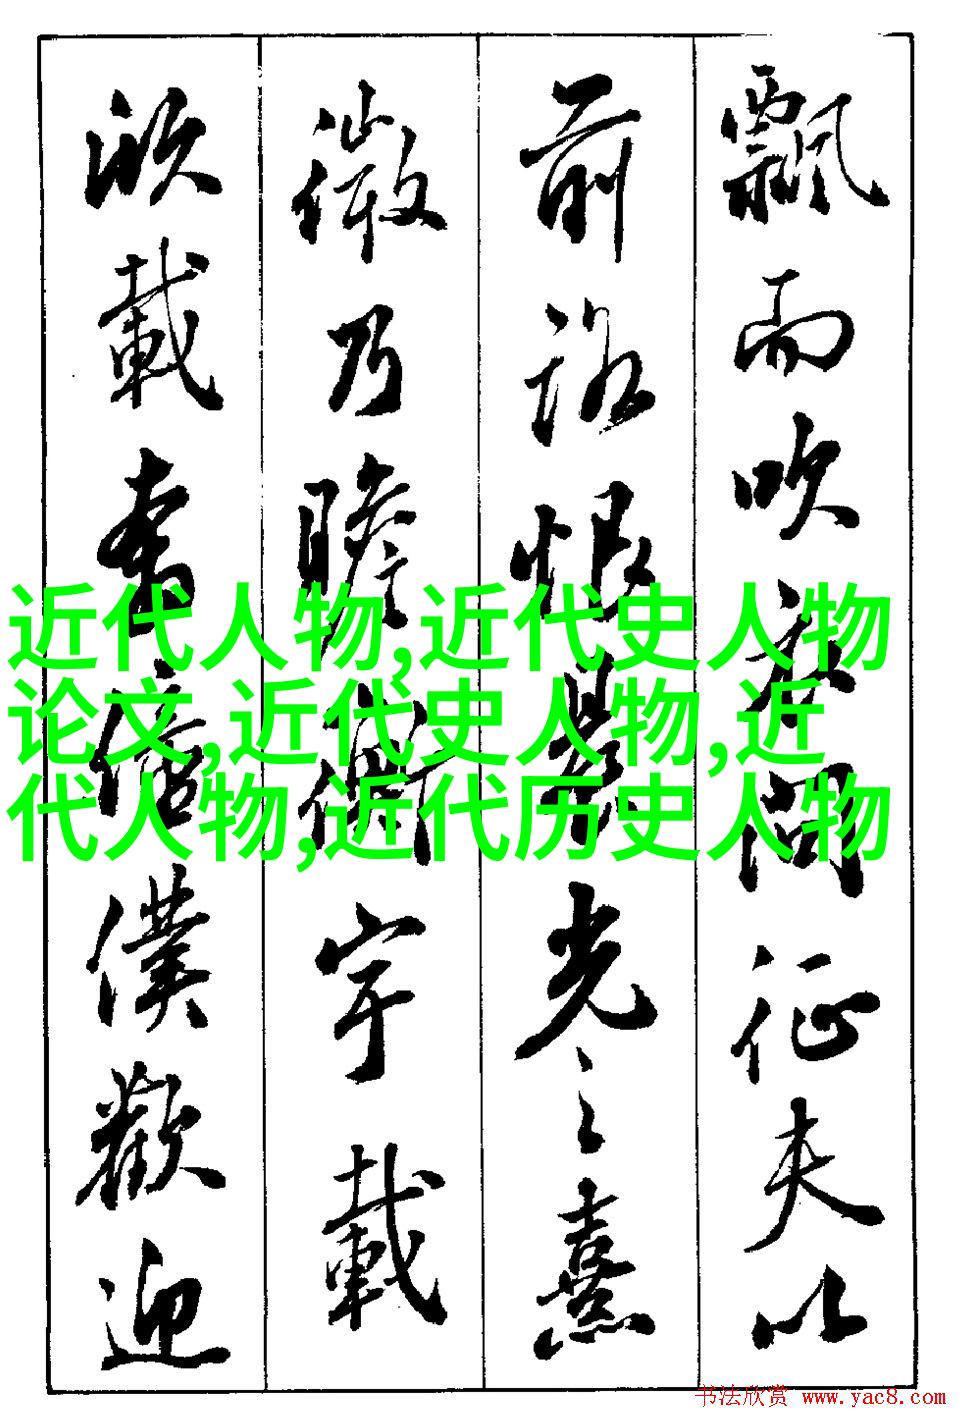 飄而吹衣问征夫以
前路恨晨光之熹
微乃瞻衡宇载
欣载奔僮僕歡迎
近代人物,近代史人物
论文,近代史人物,近
代人物,近代历史人物
书法欣赏 www.yac8.com